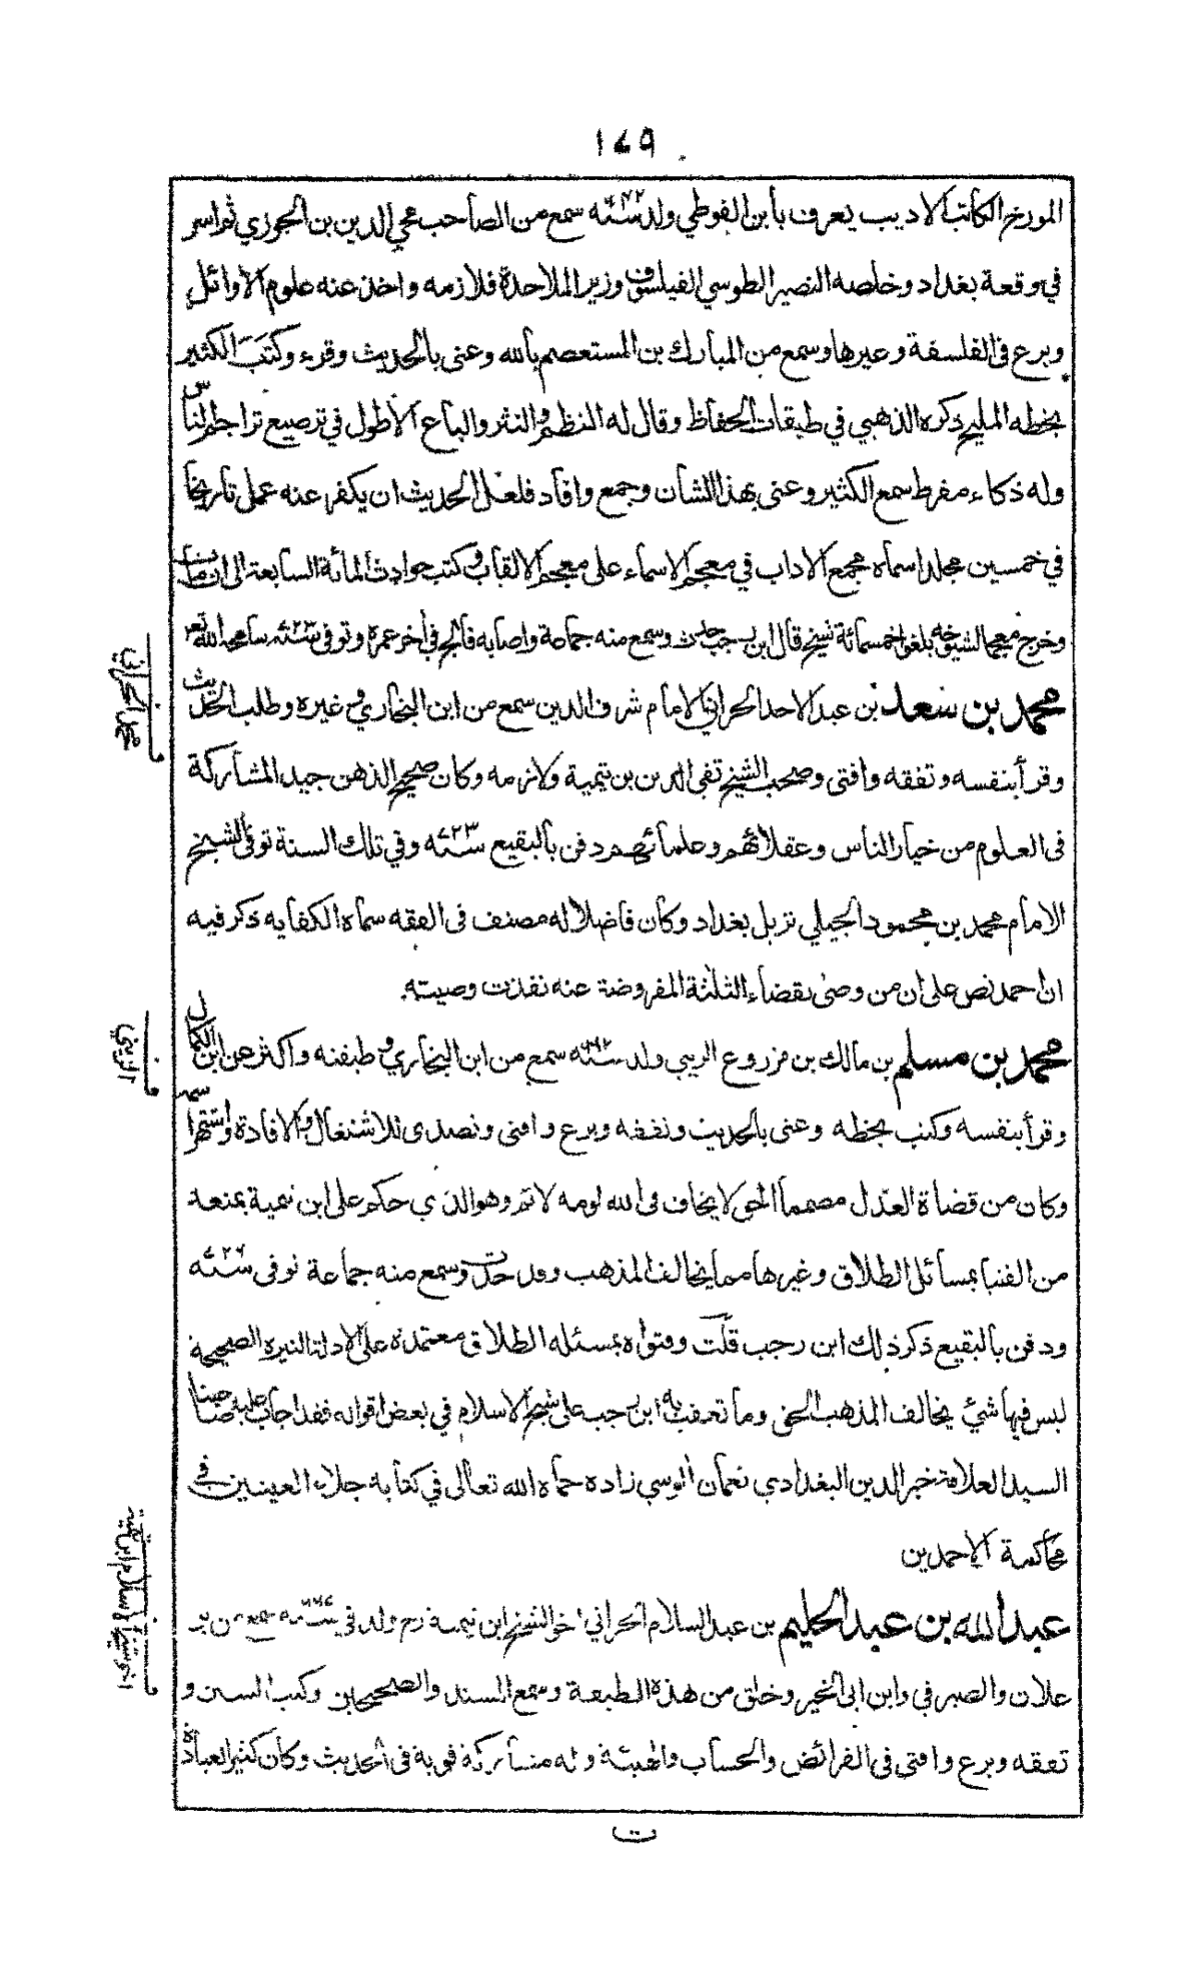 ١٤٩
المورخ الكاتب الاديب يعرف بابن الفوطي ولد سنة ٦٤٢ سمع من الصاحب محي الدين بن الجوزي ثم اسر
في وقعة بغداد وخلصه النصير الطوسي الفيلسوف وزير الملاحدة فلازمه واخذ عنه علوم الاوائل
وبرع في الفلسفة وغيرها وسمع من المبارك بن المستعصم بالله وعنى بالحديث وقرء وكتب الكثير
بخطه المليح ذكره الذهبي في طبقات الحفاظ وقال له النظم والنثر والباع الاطول في ترصيع تراجم الناس
وله ذكاء مفرط سمع الكثير وعنى بهذا الشان وجمع وافاد فلعل الحديث ان يكفر عنه عمل تاريخا
في خمسين مجلدا سماه مجمع الاداب في معجم الاسماء على معجم الالقاب وكتب حوادث المائة السابعة الى ان مات
وخرج معجما لشيوخه بلغوا خمسمائة شيخ قال ابن رجب حدث وسمع منه جماعة واصابه فالج في أخر عمره وتوفى سنة ٧٢٣ سامحه الله تعه
محمد بن سعد بن عبد الاحد الحراني الامام شرف الدين سمع من ابن البخاري وغيره وطلب الحديث
وقرأ بنفسه وتفقه وافتى وصحب الشيخ تقي الدين بن تيمية ولازمه وكان صحيح الذهن جيد المشاركة
في العلوم من خيار الناس وعقلائهم وعلمائهم دفن بالبقيع سنة ٧٢٣ وفي تلك السنة توفى الشيخ
الامام محمد بن محمود الجيلي نزيل بغداد وكان فاضلا له مصنف في الفقه سماه الكفايه ذكر فيه
ان احمد نص على ان من وصى بقضاء الثلثة المفروضة عنه نفذت وصيته
محمد بن مسلم بن مالك بن مزروع الزيني ولد سنة ٦٦٢ سمع من ابن البخاري وطبقته واكثر عن ابن الكمال
وقرأ بنفسه وكتب بخطه وعنى بالحديث وتفقه وبرع وافتى وتصدى للاشتغال والافادة واشتهر اسمه
وكان من قضاة العدل مصمما الحق لا يخاف في الله لومه لائم وهو الذي حكم على ابن تيمية بمنعه
من الفتيا بمسائل الطلاق وغيرها مما يخالف المذهب وحدث وسمع منه جماعة توفى سنة ٧٢٦
ودفن بالبقيع ذكر ذلك ابن رجب قلت وفتواه بمسئله الطلاق معتمدة على الادلة النيره الصحيحة
ليس فيها شيئ يخالف المذهب الحق وما تعقب به ابن رجب على شيخ الاسلام في بعض اقواله فقد اجاب عليه
السيد العلامة خير الدين البغدادي نعمان الوسي زاده حماه الله تعالى في كتابه جلاء العينين في
محاكمة الاحمدين
عبد الله بن عبد الحليم بن عبد السلام الحراني اخو الشيخ ابن تيمية رح ولد في سنة ٦٦٦ سمع من
علان والصيرفي وابن ابي الخير وخلق من هذه الطبقة وسمع المسند والصحيحين وكتب السنن و
تفقه وبرع وافتى في الفرائض والحساب والهيئة وله مشاركة قوية في الحديث وكان كثير العبادة
ت
محمد الحراني
الزيني
اخو شيخ الاسلام ابن تيمية